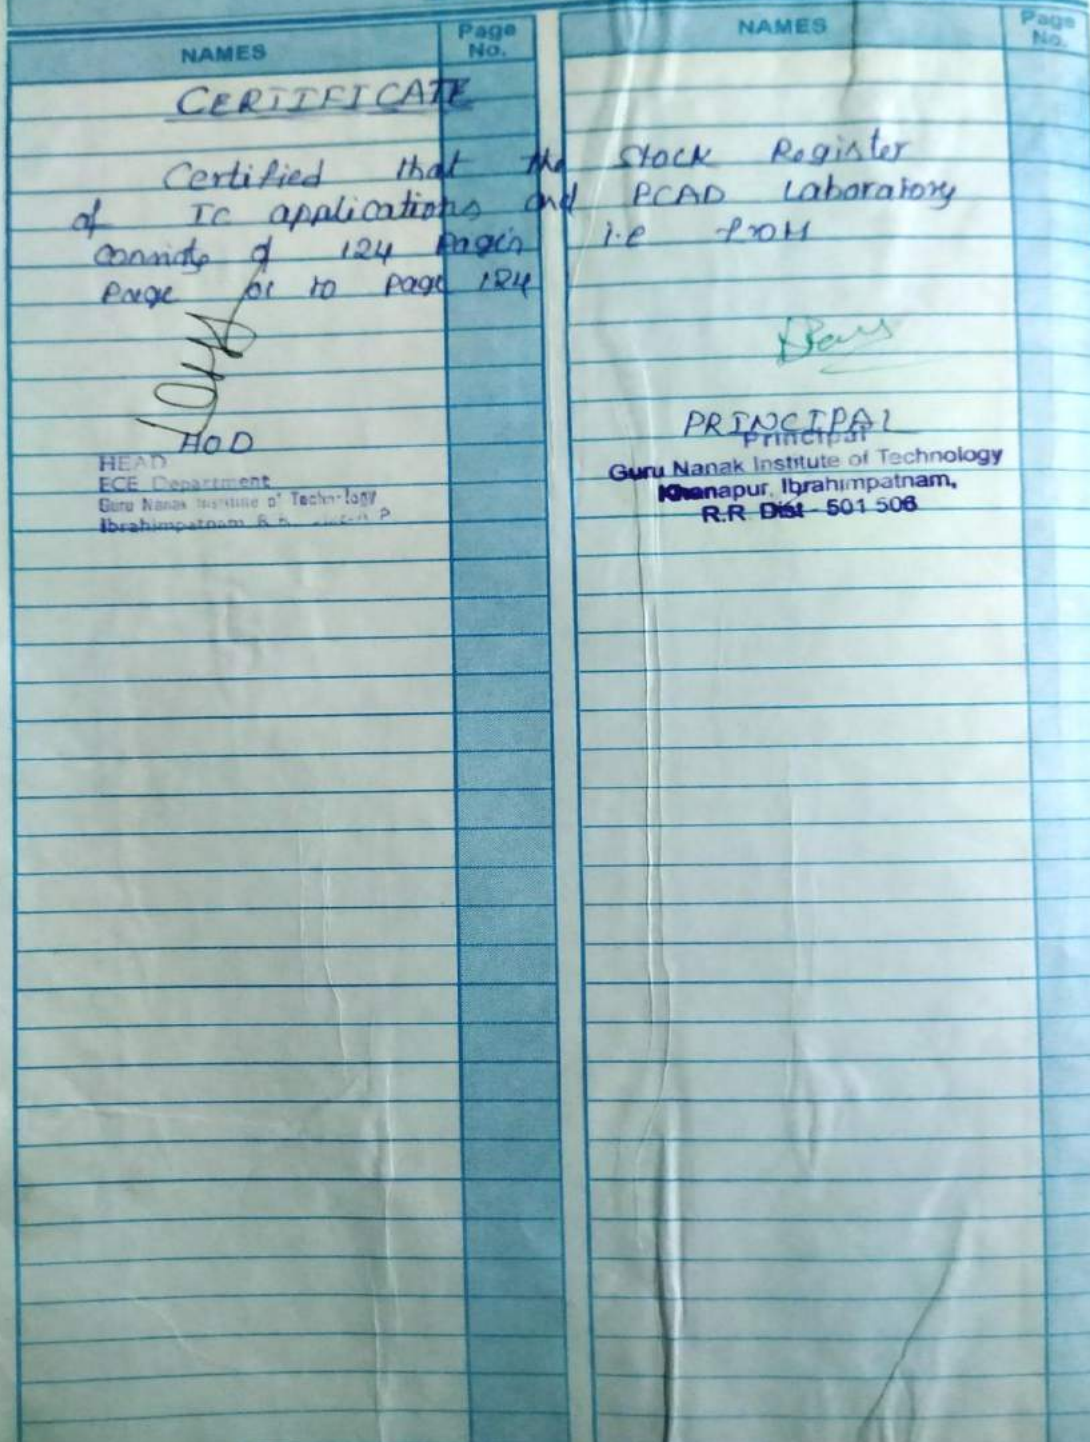 NAMES Page No. NAMES Page No.
CERTIFICATE
Certified that the Stock Register
of IC applications and PCAD Laboratory
consists of 124 Pages i.e from
Page 01 to Page 124
HOD
HEAD
ECE Department
Guru Nanak Institute of Technology
Ibrahimpatnam R.R.
PRINCIPAL
Principal
Guru Nanak Institute of Technology
Khanapur, Ibrahimpatnam,
R.R Dist - 501 506